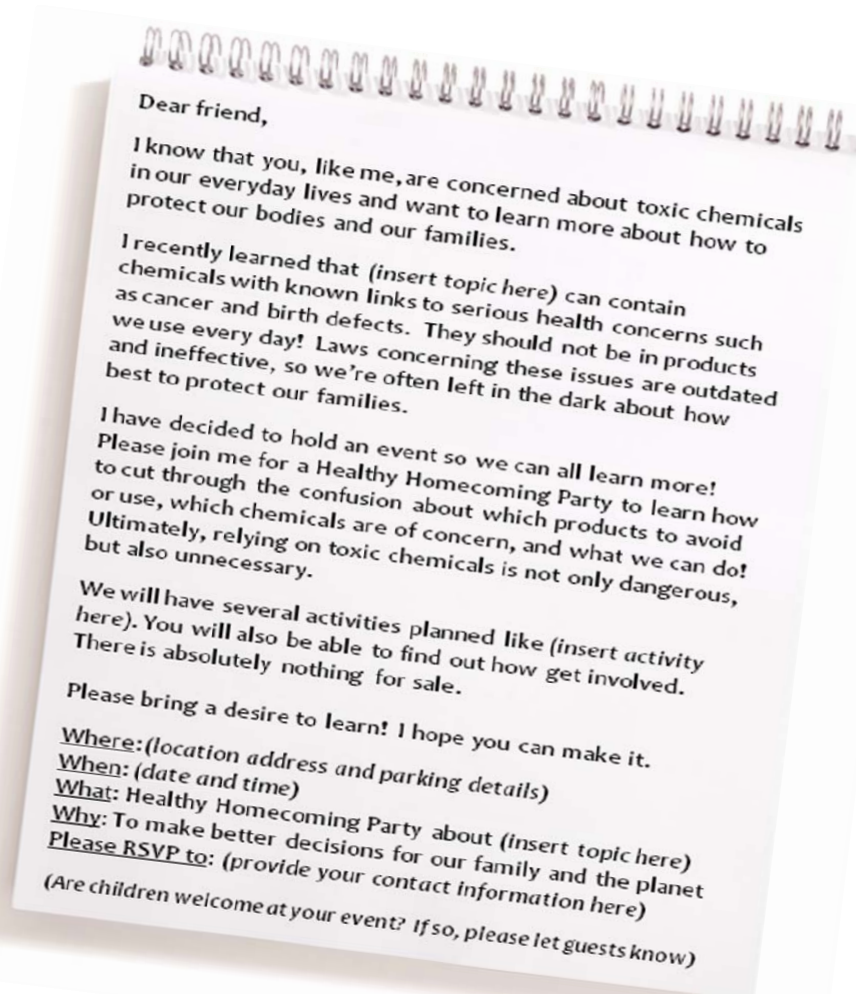 Dear friend,
I know that you, like me, are concerned about toxic chemicals
in our everyday lives and want to learn more about how to
protect our bodies and our families.
I recently learned that (insert topic here) can contain
chemicals with known links to serious health concerns such
as cancer and birth defects. They should not be in products
we use every day! Laws concerning these issues are outdated
and ineffective, so we're often left in the dark about how
best to protect our families.
I have decided to hold an event so we can all learn more!
Please join me for a Healthy Homecoming Party to learn how
to cut through the confusion about which products to avoid
or use, which chemicals are of concern, and what we can do!
Ultimately, relying on toxic chemicals is not only dangerous,
but also unnecessary.
We will have several activities planned like (insert activity
here). You will also be able to find out how get involved.
There is absolutely nothing for sale.
Please bring a desire to learn! I hope you can make it.
Where: (location address and parking details)
When: (date and time)
What: Healthy Homecoming Party about (insert topic here)
Why: To make better decisions for our family and the planet
Please RSVP to: (provide your contact information here)
(Are children welcome at your event? If so, please let guests know)